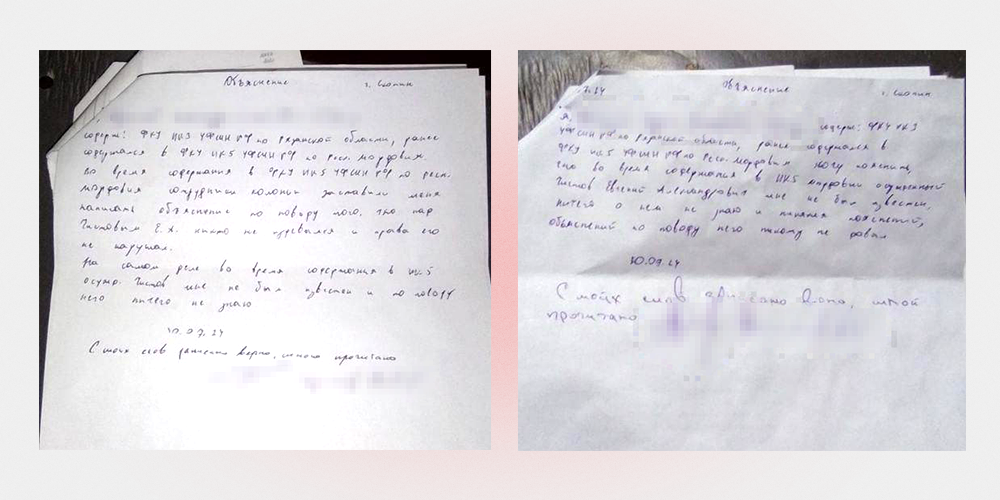 Объяснение г. Скопин
содерж: ФКУ ИК3 УФСИН РФ по Рязанской области, ранее
содержался в ФКУ ИК5 УФСИН РФ по Респ. Мордовия.
Во время содержания в ФКУ ИК5 УФСИН РФ по респ.
Мордовия сотрудники колонии заставили меня
написать объяснение по поводу того, что над
Чистовым Е.А. никто не издевался и права его
не нарушал.
На самом деле во время содержания в ИК5
осужд. Чистов мне не был известен и по поводу
него ничего не знаю
10.07.24
С моих слов записано верно, мною прочитано
7.24 Объяснение г. Скопин
Я, содерж: ФКУ ИК3
УФСИН РФ по Рязанской области, ранее содержался в
ФКУ ИК5 УФСИН РФ по Респ. Мордовия могу пояснить,
что во время содержания в ИК5 Мордовии осужденный
Чистов Евгений Александрович мне не был известен,
ничего о нем не знаю и никаких пояснений,
объяснений по поводу него никому не давал
10.07.24
С моих слов записано верно, мной
прочитано